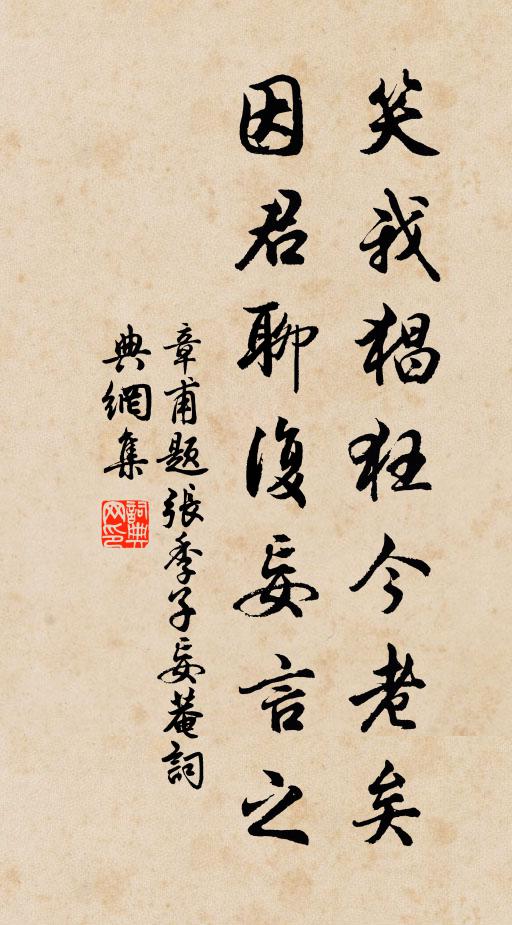 笑我猖狂今老矣
因君聊復妄言之
章甫題張季子妄菴詞
典網集
詞典網印